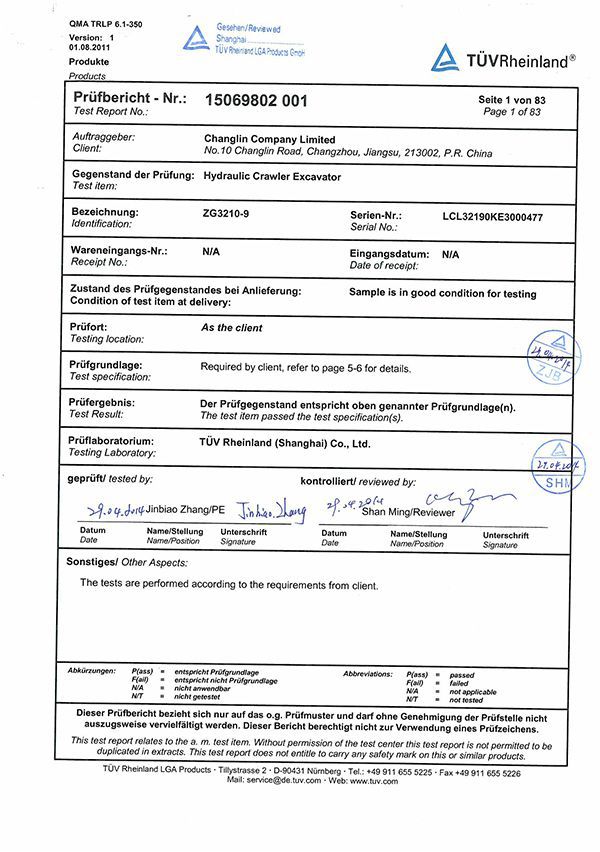 QMA TRLP 6.1-350
Version: 1
01.08.2011
Produkte
Products
Gesehen/Reviewed
Shanghai
TÜV Rheinland LGA Products GmbH
TÜVRheinland®
Prüfbericht - Nr.: 15069802 001 Seite 1 von 83
Test Report No.: Page 1 of 83
Auftraggeber: Changlin Company Limited
Client: No.10 Changlin Road, Changzhou, Jiangsu, 213002, P.R. China
Gegenstand der Prüfung: Hydraulic Crawler Excavator
Test item:
Bezeichnung: ZG3210-9 Serien-Nr.: LCL32190KE3000477
Identification: Serial No.:
Wareneingangs-Nr.: N/A Eingangsdatum: N/A
Receipt No.: Date of receipt:
Zustand des Prüfgegenstandes bei Anlieferung: Sample is in good condition for testing
Condition of test item at delivery:
Prüfort: As the client
Testing location:
Prüfgrundlage: Required by client, refer to page 5-6 for details.
Test specification:
ZJB
Prüfergebnis: Der Prüfgegenstand entspricht oben genannter Prüfgrundlage(n).
Test Result: The test item passed the test specification(s).
Prüflaboratorium: TÜV Rheinland (Shanghai) Co., Ltd.
Testing Laboratory:
29.04.2014
SHM
geprüft/ tested by: kontrolliert/ reviewed by:
29.04.2014 Jinbiao Zhang/PE Jinbiao.Zhang 29.04.2014 Shan Ming/Reviewer
Datum Name/Stellung Unterschrift Datum Name/Stellung Unterschrift
Date Name/Position Signature Date Name/Position Signature
Sonstiges/ Other Aspects:
The tests are performed according to the requirements from client.
Abkürzungen: P(ass) = entspricht Prüfgrundlage Abbreviations: P(ass) = passed
F(ail) = entspricht nicht Prüfgrundlage F(ail) = failed
N/A = nicht anwendbar N/A = not applicable
N/T = nicht getestet N/T = not tested
Dieser Prüfbericht bezieht sich nur auf das o.g. Prüfmuster und darf ohne Genehmigung der Prüfstelle nicht
auszugsweise vervielfältigt werden. Dieser Bericht berechtigt nicht zur Verwendung eines Prüfzeichens.
This test report relates to the a. m. test item. Without permission of the test center this test report is not permitted to be
duplicated in extracts. This test report does not entitle to carry any safety mark on this or similar products.
TÜV Rheinland LGA Products · Tillystrasse 2 · D-90431 Nürnberg · Tel.: +49 911 655 5225 · Fax +49 911 655 5226
Mail: service@de.tuv.com · Web: www.tuv.com